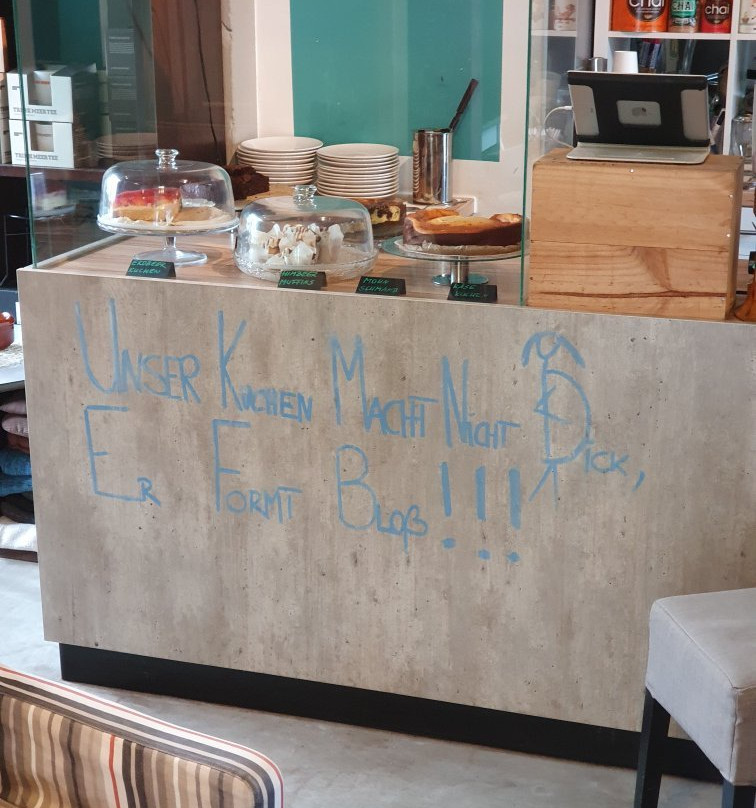 chai
CHAI
chai
TRINKMEERTEE
TRINKMEERTEE
ERDBEER
KUCHEN
HIMBEER
MUFFINS
MOHN
SCHMAND
KÄSE
KUCHEN
UNSER KUCHEN MACHT NICHT DICK,
ER FORMT BLOß!!!